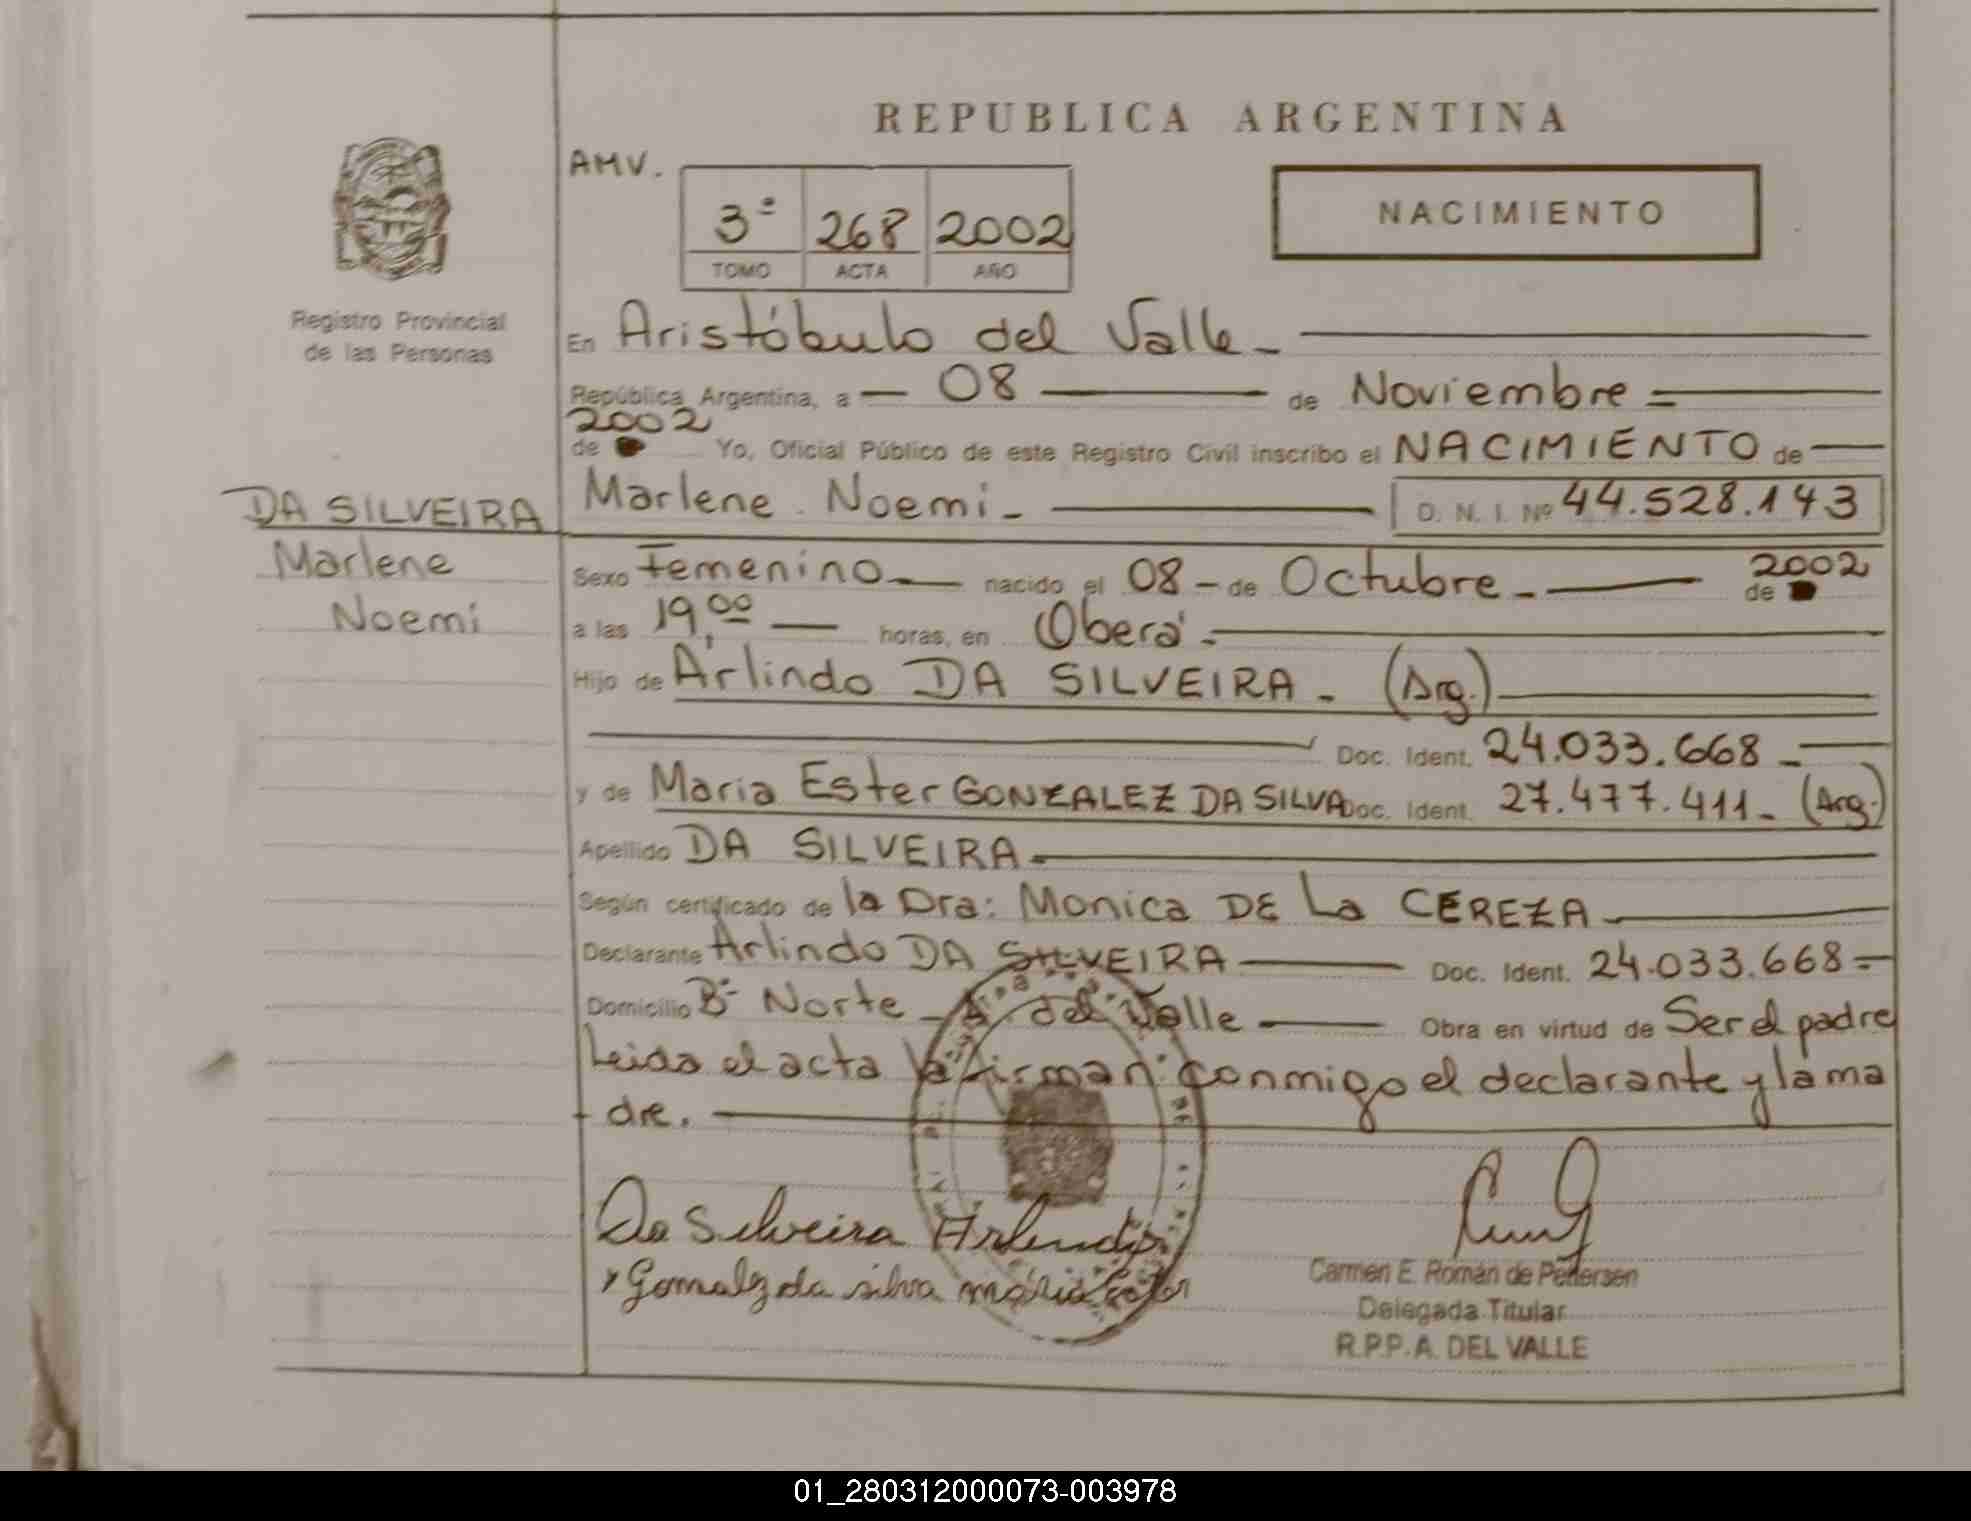 REPUBLICA ARGENTINA
AMV.
3º 268 2002
TOMO ACTA AÑO
NACIMIENTO
Registro Provincial
de las Personas
En Aristóbulo del Valle -
República Argentina, a - 08 de Noviembre =
2002
de Yo, Oficial Público de este Registro Civil inscribo el NACIMIENTO de
DA SILVEIRA
Marlene
Noemí
Marlene Noemi - D. N. I. Nº 44.528.143
Sexo Femenino nacido el 08 - de Octubre - de 2002
a las 19,00 horas, en Oberá -
Hijo de Arlindo DA SILVEIRA - (Arg.)
Doc. Ident. 24.033.668 -
y de Maria Ester GONZALEZ DA SILVA Doc. Ident. 27.477.411 - (Arg.)
Apellido DA SILVEIRA -
Según certificado de la Dra: Monica DE La CEREZA -
Declarante Arlindo DA SILVEIRA Doc. Ident. 24.033.668 =
Domicilio Bº Norte - A. del Valle Obra en virtud de Ser el padre
Leida el acta la firman conmigo el declarante y la ma
- dre.
Da Silveira Arlindo
Gomalz da silva maria ester
Carmen E. Román de Pettersen
Delegada Titular
R.P.P. A. DEL VALLE
01_280312000073-003978